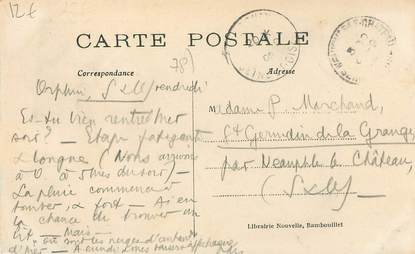 12€
CARTE POSTALE
Correspondance
78)
Adresse
Orphin, S&O/vendredi
Es-tu bien rentré hier
soir? — Étape fatigante
& longue (Nous arrivons
à 5 hres du soir) —
La pluie commence à
tomber, & fort — Ai eu
la chance de trouver un
lit — Mais —
"où sont les neiges d'antan
d'hier — À lundi
Madame P. Marchand,
St Germain de la Grange
par Neauphle le Château,
(S&O)
Librairie Nouvelle, Rambouillet